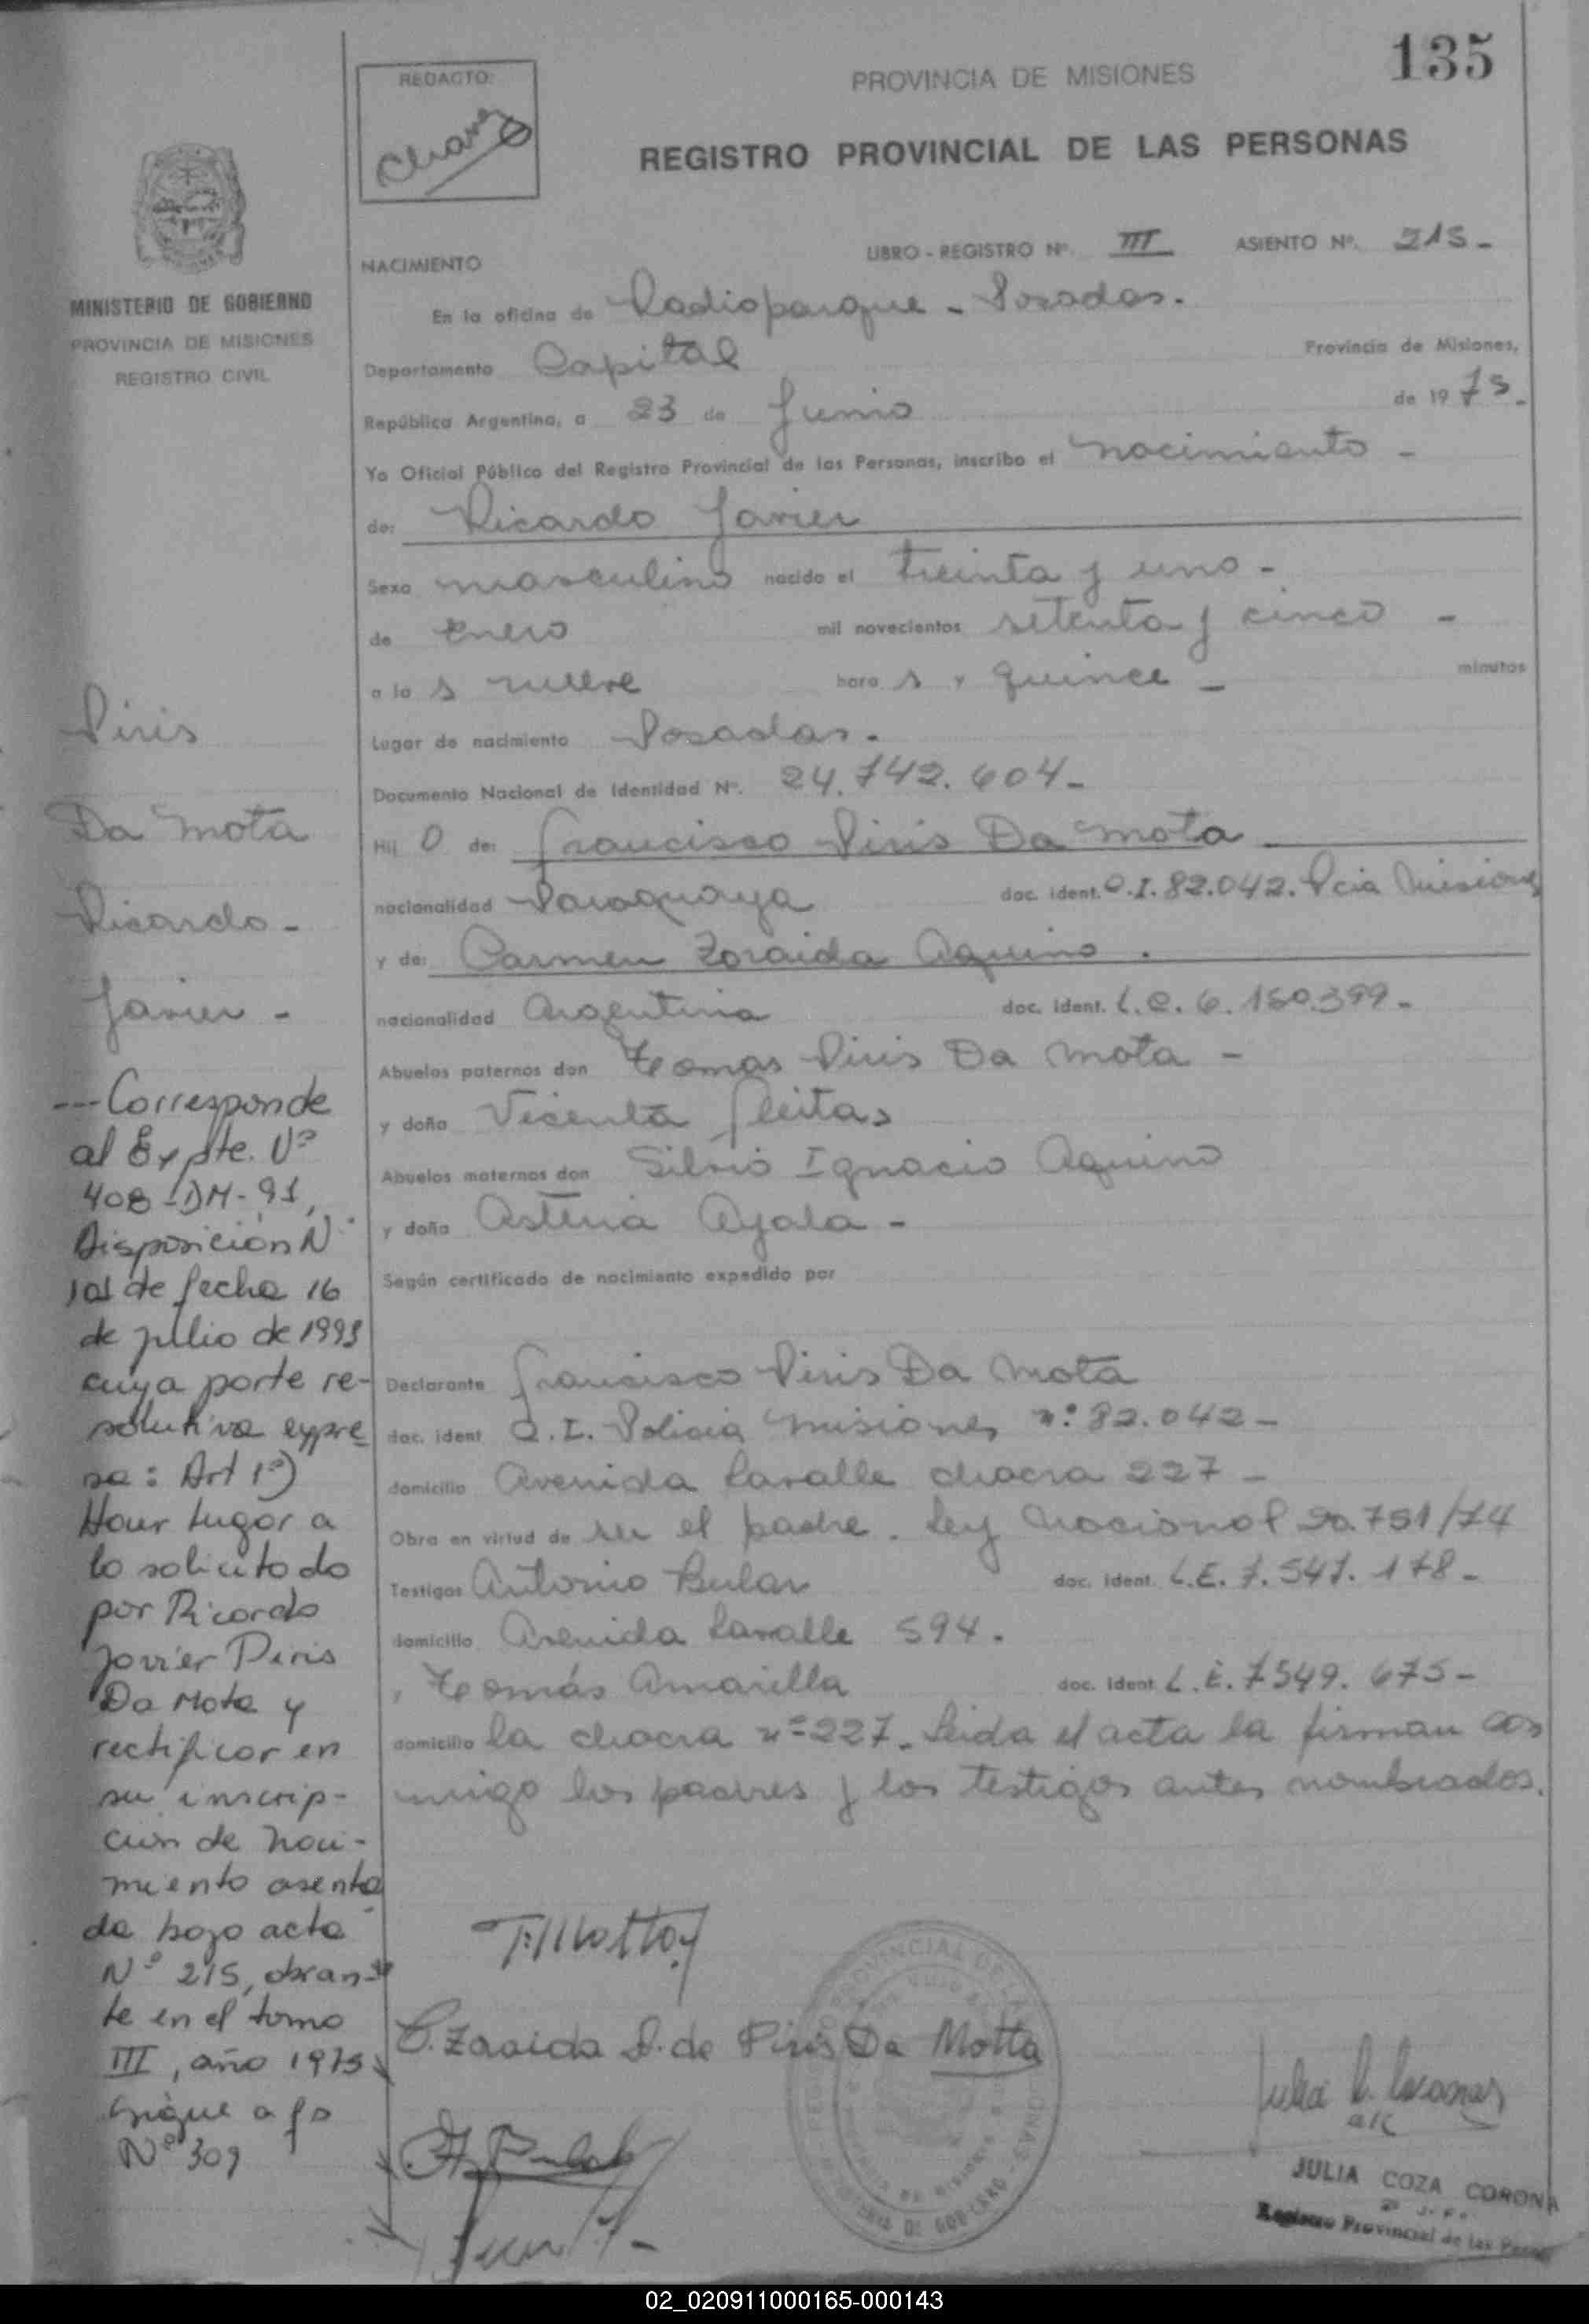 135
REDACTO:
Chavez
PROVINCIA DE MISIONES
REGISTRO PROVINCIAL DE LAS PERSONAS
MINISTERIO DE GOBIERNO
PROVINCIA DE MISIONES
REGISTRO CIVIL
LIBRO - REGISTRO Nº. III ASIENTO Nº. 215-
NACIMIENTO
En la oficina de Radioparque - Posadas.
Departamento Capital Provincia de Misiones,
República Argentina, a 23 de Junio de 1975.
Yo Oficial Público del Registro Provincial de las Personas, inscribo el nacimiento -
de: Ricardo Javier
Sexo masculino nacido el treinta y uno -
de Enero mil novecientos setenta y cinco -
a la s nueve hora s y quince - minutos
Lugar de nacimiento Posadas.
Documento Nacional de Identidad Nº. 24.742.604-
Hij o de: Francisco Piris Da Mota
nacionalidad Paraguaya doc. ident. C.I. 82.042. Pcia Misiones
y de: Carmen Zoraida Aquino.
nacionalidad Argentina doc. ident. L.C. 6.150.399-
Abuelos paternos don Tomas Piris Da Mota -
y doña Vicenta Fleitas
Abuelos maternos don Silvio Ignacio Aquino
y doña Asteria Ayala -
Según certificado de nacimiento expedido por
Declarante Francisco Piris Da Mota
doc. ident C.I. Policia Misiones nº: 82.042-
domicilio Avenida Lavalle chacra 227-
Obra en virtud de su el padre. Ley Nacional 20.751/74
Testigos Antonio Bular doc. ident. L.E. 7.547.178-
domicilio Avenida Lavalle 594.
y Tomás Amarilla doc. ident L.E. 7549.675-
domicilio la chacra nº 227. Leida el acta la firman con
migo los padres y los testigos antes nombrados.
Piris
Da Mota
Ricardo -
Javier -
---Corresponde
al Expte. Nº
408-DM-91,
Disposición Nº
101 de fecha 16
de julio de 1991
cuya parte re-
solutiva expre
sa: Art 1º)
Hacer lugar a
lo solicitado
por Ricardo
Javier Piris
Da Mota y
rectificar en
su inscrip-
cion de naci-
miento asenta
da bajo acta
Nº 215, obran-
te en el tomo
III, año 1975
Sigue a fº
Nº 309
C. Zoraida A. de Piris Da Motta
JULIA COZA CORONA
Registro Provincial de las
02_020911000165-000143